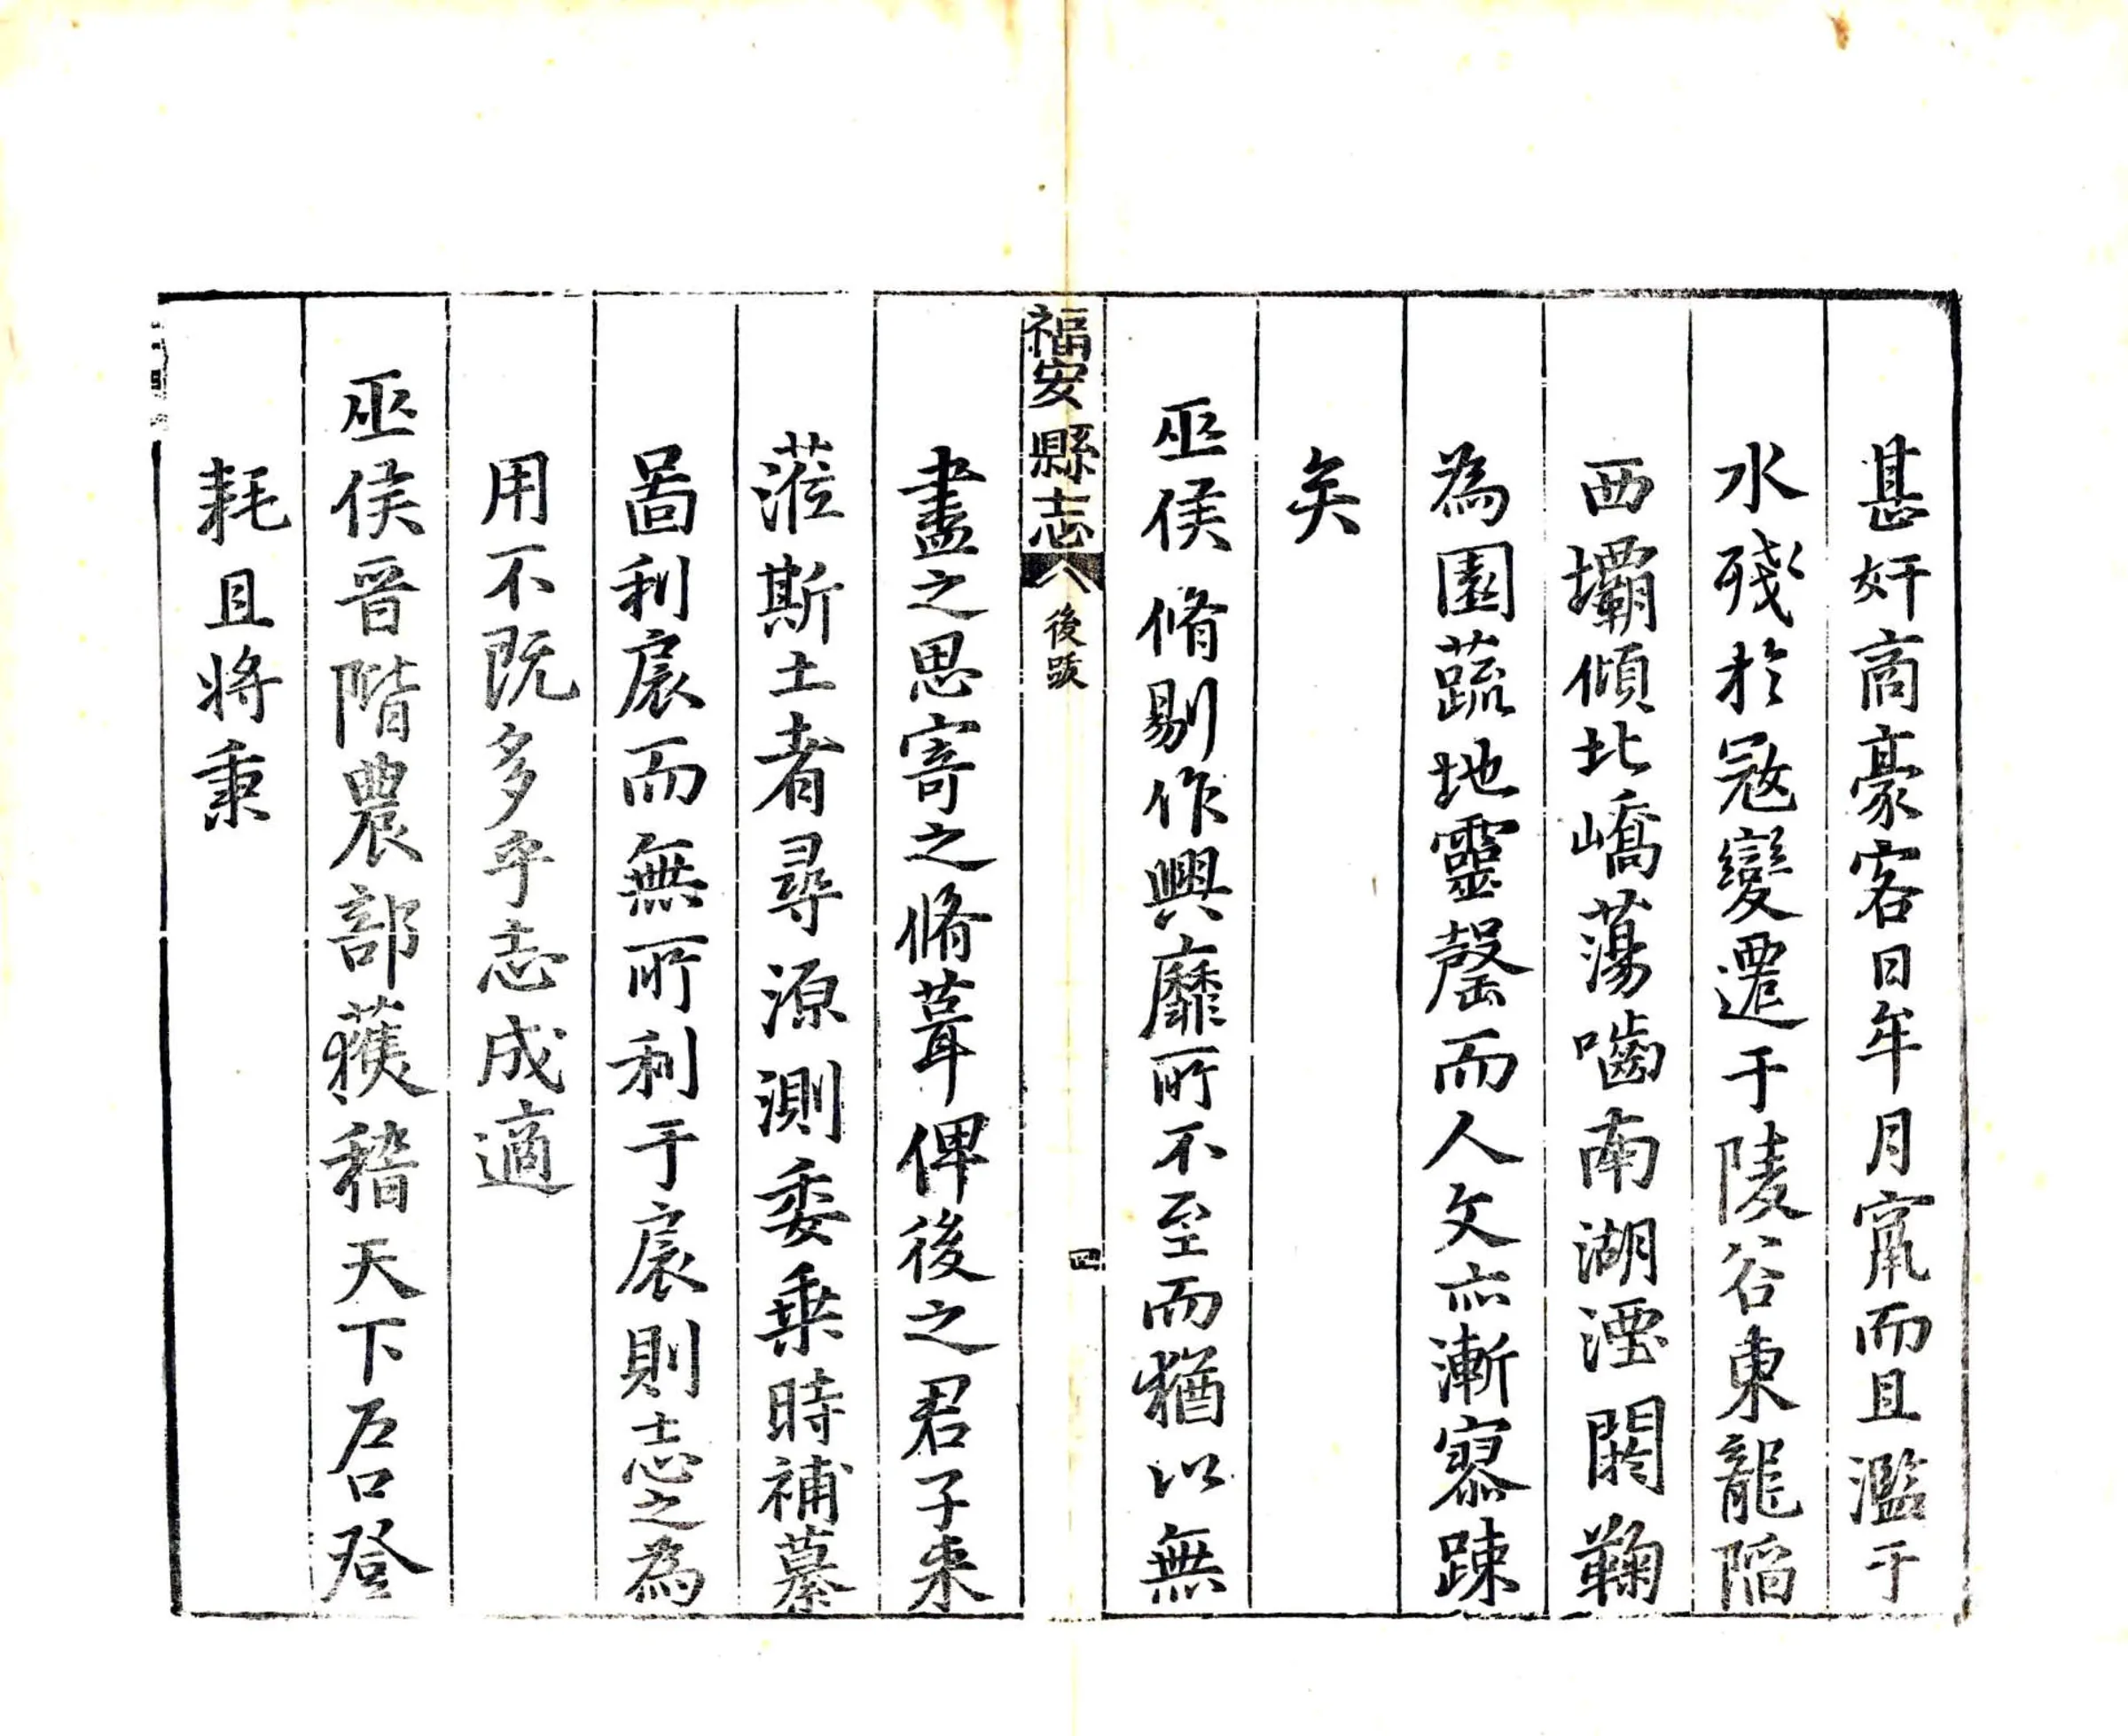 甚奸商豪客日牟月甯而且濫于
水殘於冦變遷于陵谷東龍陷
西壩傾北嶠蕩嚙南湖湮閼鞠
為園蔬地靈罄而人文亦漸寥踈
矣
巫侯脩剔作興靡所不至而猶以無
福安縣志 後跋 四
盡之思寄之脩葺俾後之君子来
蒞斯土者尋源測委乗時補綦
啚利扆而無所利于扆則志之為
用不既多乎志成適
巫侯晉階農部蓘稽天下戶口登
耗且将秉